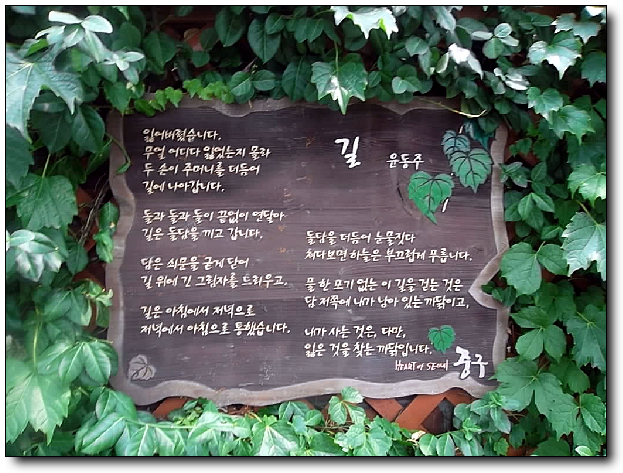 길 윤동주
잃어버렸습니다.
무얼 어디다 잃었는지 몰라
두 손이 주머니를 더듬어
길에 나아갑니다.
돌과 돌과 돌이 끝없이 연달아
길은 돌담을 끼고 갑니다.
담은 쇠문을 굳게 닫어
길 위에 긴 그림자를 드리우고,
길은 아침에서 저녁으로
저녁에서 아침으로 통했습니다.
돌담을 더듬어 눈물짓다
쳐다보면 하늘은 부끄럽게 푸릅니다.
풀 한 포기 없는 이 길을 걷는 것은
담 저쪽에 내가 남아 있는 까닭이고,
내가 사는 것은, 다만,
잃은 것을 찾는 까닭입니다.
HEART of SEOUL 중구